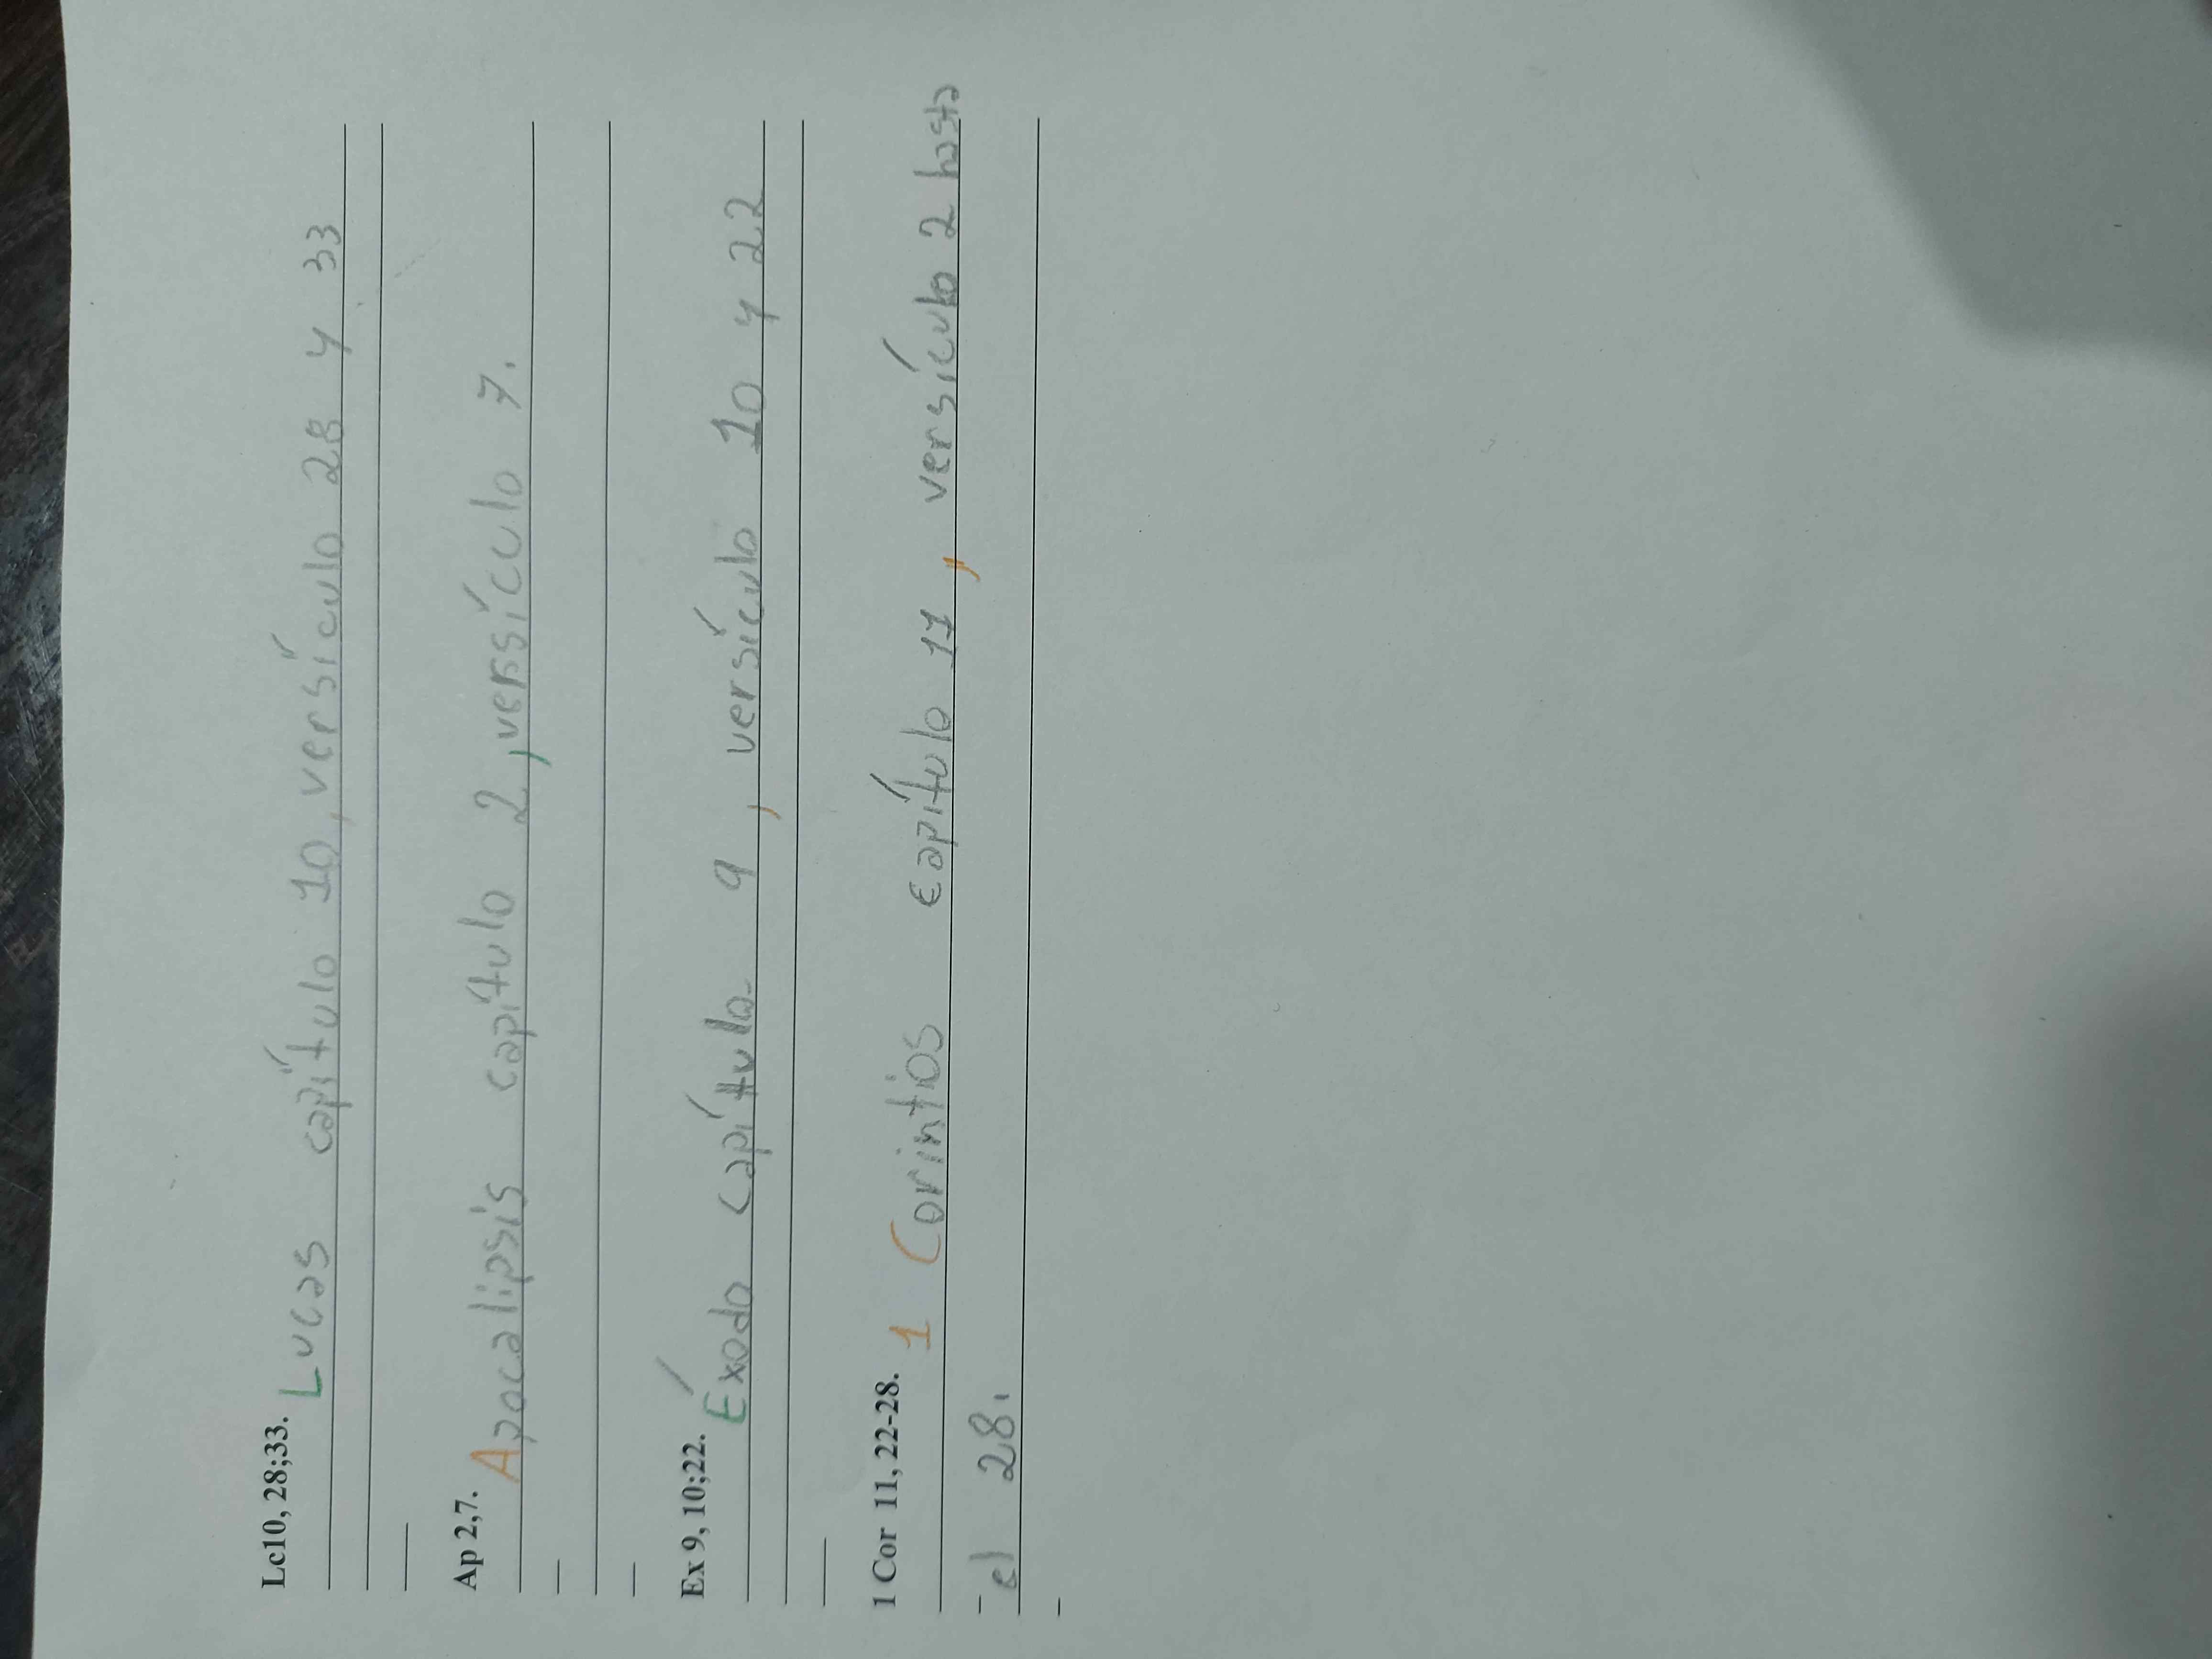 Lc10, 28;33.
Lucas capítulo 10, versículo 28 y 33
Ap 2,7.
Apocalipsis capítulo 2, versículo 7.
Ex 9, 10;22.
Éxodo capítulo 9, versículo 10 y 22
1 Cor 11, 22-28.
1 Corintios capítulo 11, versículo 2 hasta
el 28.